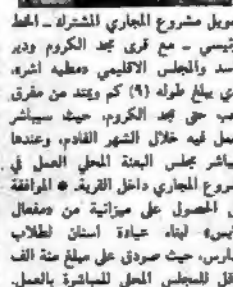 مويل مشروع المجاري المشترك ـ الخط
ئيسي ـ مع قرى مجد الكروم ودير
سد والمجلس الاقليمي «مطيه اشر»
ي يبلغ طوله (٩) كم ويمتد من مفرق
حتى مجد الكروم، حيث سيباشر
مل فيه خلال الشهر القادم، وعندها
باشر مجلس البعنة المحلي العمل في
روع المجاري داخل القرية. * الموافقة
الحصول على ميزانية من «مفعال
ايس» لبناء عيادة اسنان لطلاب
دارس، حيث صودق على مبلغ مئة الف
قل للمجلس المحلي للمباشرة بالعمل.